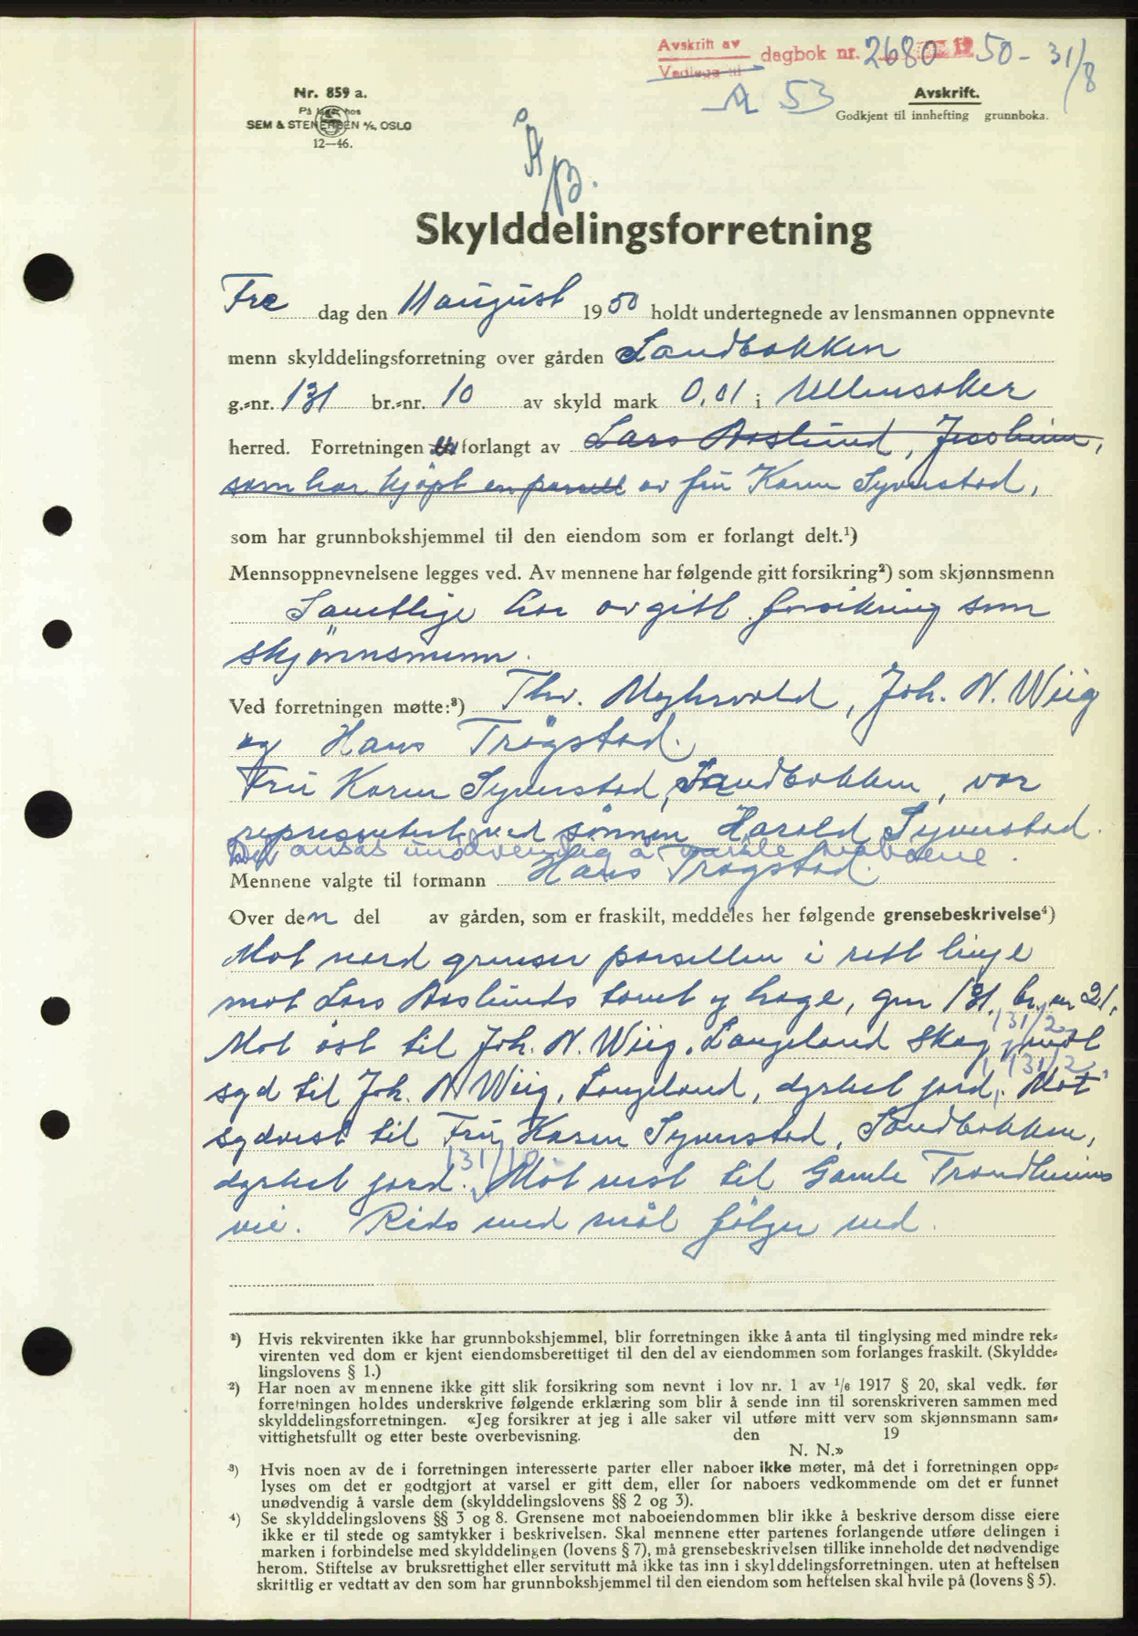 Avskrift av
Vedlegg til
dagbok nr. 2680 1950 - 31/8
A 53
Nr. 859 a.
På lager hos
SEM & STENERSEN A/S, OSLO
12—46.
Avskrift.
Godkjent til innhefting grunnboka.
Skylddelingsforretning
Fre dag den 11 august 1950 holdt undertegnede av lensmannen oppnevnte
menn skylddelingsforretning over gården Sandbakken
g.-nr. 131 br.-nr. 10 av skyld mark 0,01 i Ullensaker
herred. Forretningen er forlangt av Lars Aaslund, Jessheim,
som har kjøpt en parsell av fru Karen Syverstad,
som har grunnbokshjemmel til den eiendom som er forlangt delt.¹)
Mennsoppnevnelsene legges ved. Av mennene har følgende gitt forsikring²) som skjønnsmenn
Samtlige har avgitt forsikring som
skjønnsmenn.
Ved forretningen møtte:³) Thv. Myhrvold, Joh. N. Wiig
og Hans Trøgstad.
Fru Karen Syverstad, Sandbakken, var
representert ved sønnen Harald Syverstad.
Det ansås unødvendig å varsle naboene.
Mennene valgte til formann Hans Trøgstad.
Over den del av gården, som er fraskilt, meddeles her følgende grensebeskrivelse⁴)
Mot nord grenser parsellen i rett linje
mot Lars Aaslunds tomt og hage, gnr 131, br. nr 21.
131/2
Mot øst til Joh. N. Wiig, Langeland skog, mot
131/2
syd til Joh. N Wiig, Langeland, dyrket jord. Mot
sydvest til Fru Karen Syverstad, Sandbakken,
131/10
dyrket jord. Mot vest til Gamle Trondheims
vei. Rids med mål følger ved.
¹) Hvis rekvirenten ikke har grunnbokshjemmel, blir forretningen ikke å anta til tinglysing med mindre rek-
virenten ved dom er kjent eiendomsberettiget til den del av eiendommen som forlanges fraskilt. (Skyldde-
lingslovens § 1.)
²) Har noen av mennene ikke gitt slik forsikring som nevnt i lov nr. 1 av ¹/₆ 1917 § 20, skal vedk. før
forretningen holdes underskrive følgende erklæring som blir å sende inn til sorenskriveren sammen med
skylddelingsforretningen. «Jeg forsikrer at jeg i alle saker vil utføre mitt verv som skjønnsmann sam-
vittighetsfullt og etter beste overbevisning. den 19
N. N.»
³) Hvis noen av de i forretningen interesserte parter eller naboer ikke møter, må det i forretningen opp-
lyses om det er godtgjort at varsel er gitt dem, eller for naboers vedkommende om det er funnet
unødvendig å varsle dem (skylddelingslovens §§ 2 og 3).
⁴) Se skylddelingslovens §§ 3 og 8. Grensene mot naboeiendommen blir ikke å beskrive dersom disse eiere
ikke er til stede og samtykker i beskrivelsen. Skal mennene etter partenes forlangende utføre delingen i
marken i forbindelse med skylddelingen (lovens § 7), må grensebeskrivelsen tillike inneholde det nødvendige
herom. Stiftelse av bruksrettighet eller servitutt må ikke tas inn i skylddelingsforretningen, uten at heftelsen
skriftlig er vedtatt av den som har grunnbokshjemmel til den eiendom som heftelsen skal hvile på (lovens § 5).